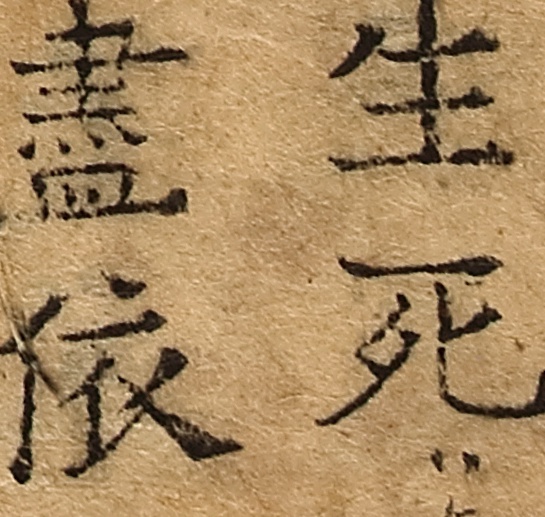 生死
盡依